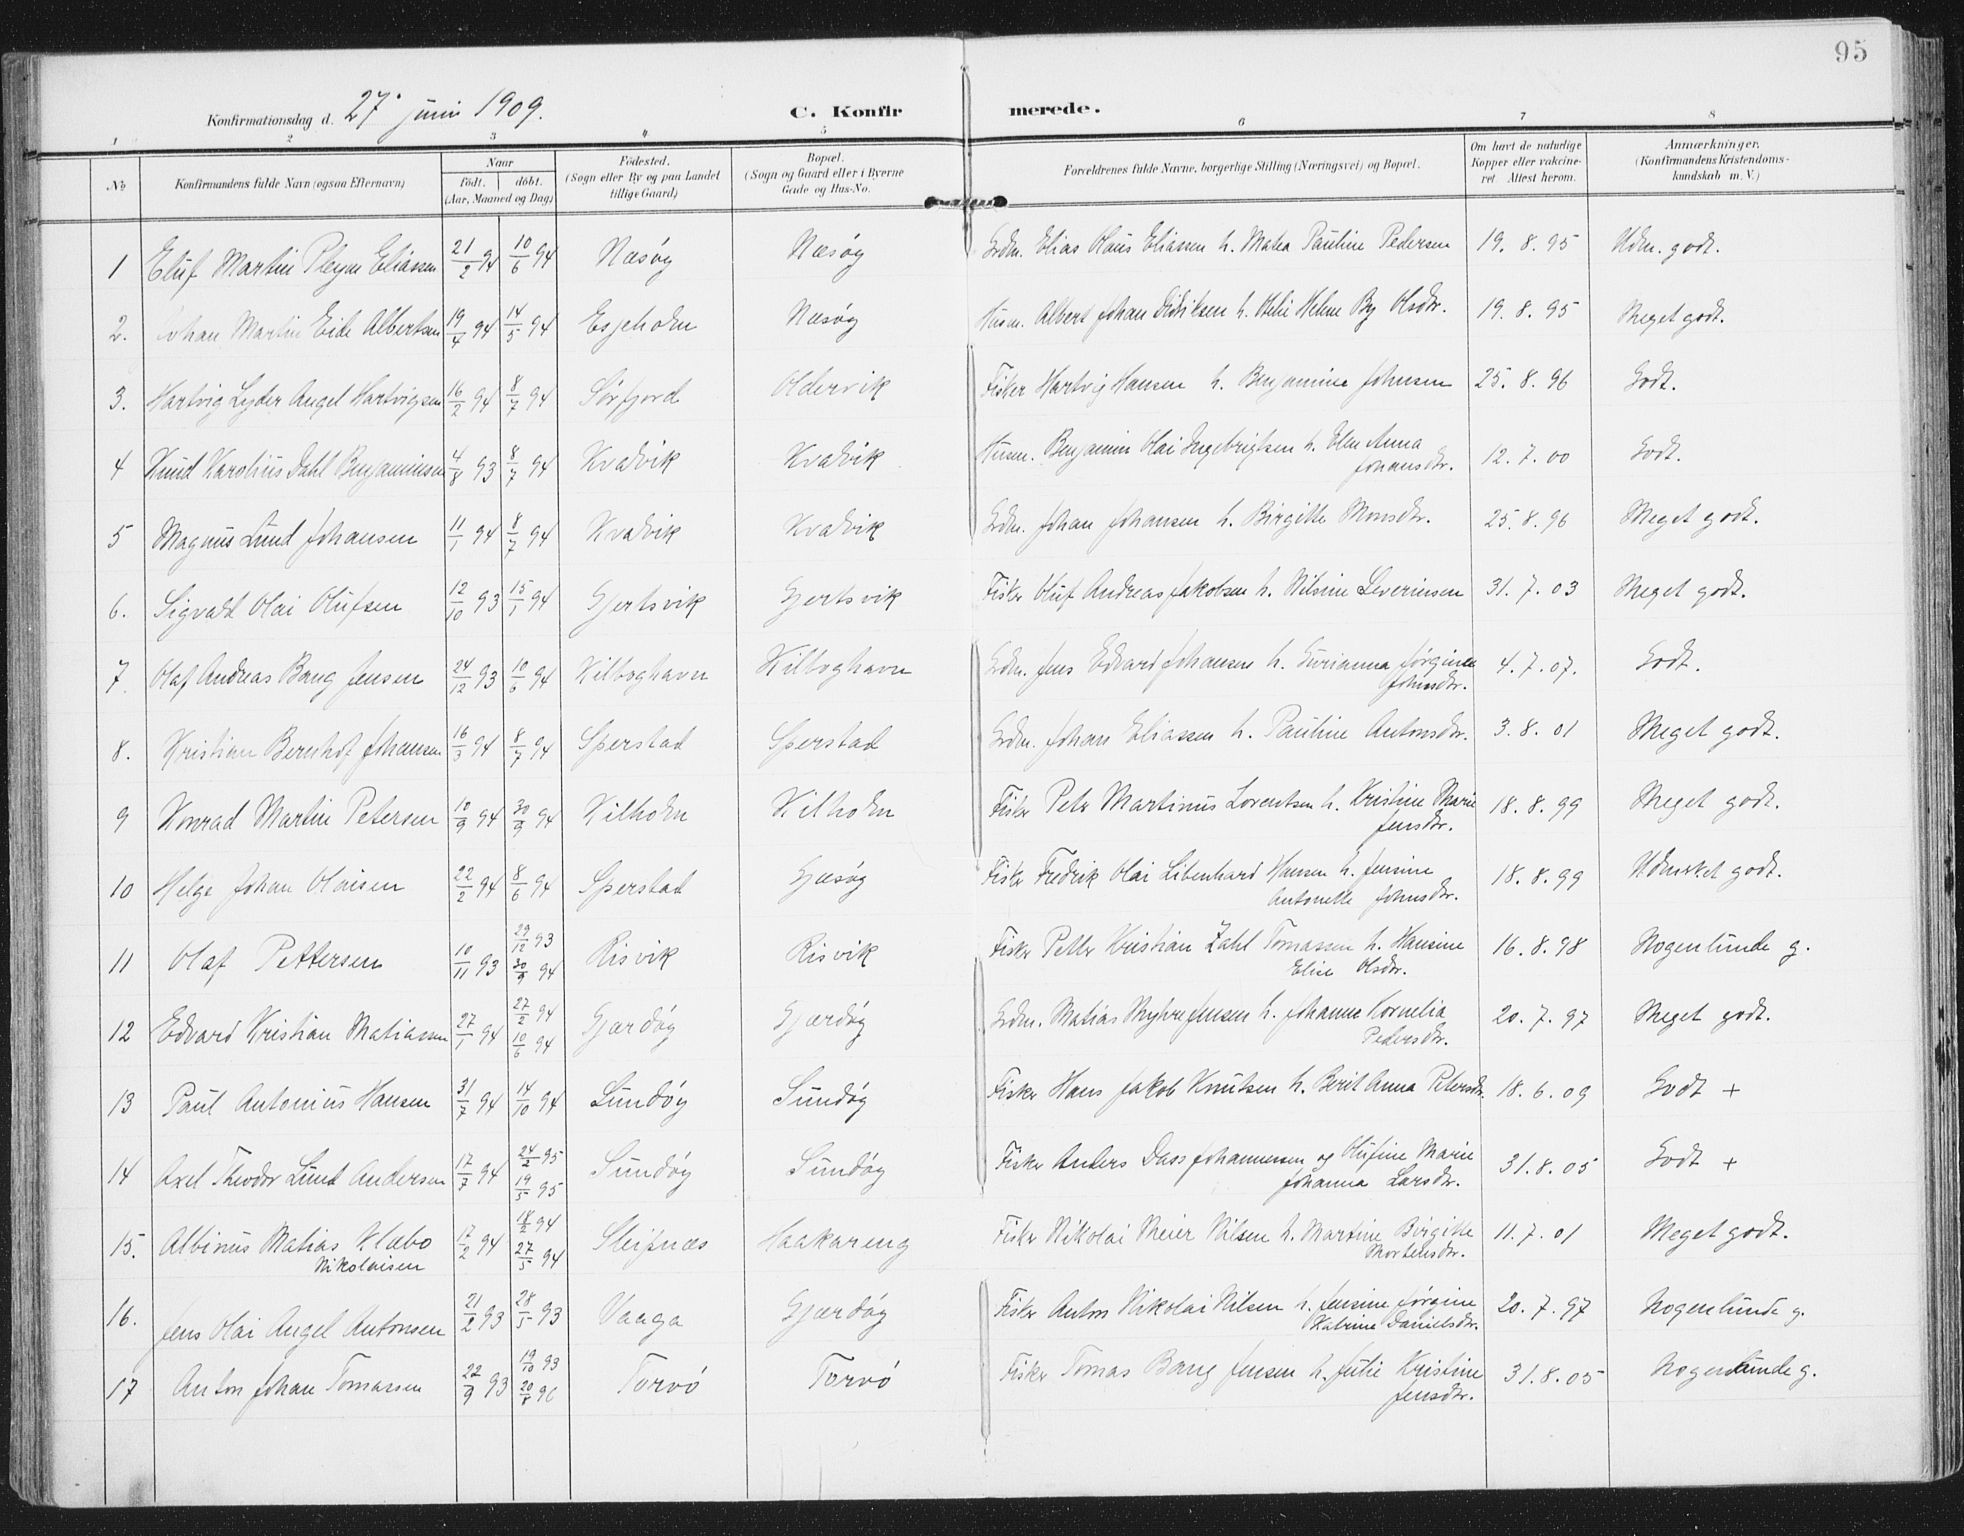 95
Konfirmationsdag d. 27. juni 1909.
C. Konfir merede.
1 2 3 4 5 6 7 8
No
Konfirmandens fulde Navn (ogsaa Efternavn)
Naar
födt. döbt.
(Aar, Maaned og Dag)
Födested.
(Sogn eller By og paa Landet
tillige Gaard)
Bopæl.
(Sogn og Gaard eller i Byerne
Gade og Hus-No.
Forældrenes fulde Navne, borgerlige Stilling (Næringsvei) og Bopæl.
Om havt de naturlige
Kopper eller vakcine-
ret. Attest herom.
Anmærkninger.
(Konfirmandens Kristendoms-
kundskab m. V.)
1 Eluf Martin Pleym Eliassen 21/2 94 10/6 94 Næsöy Næsöy Grdm. Elias Olaus Eliassen h. Matea Pauline Pedersen 19. 8. 95 Udm. godt.
2. Johan Martin Eide Albertsen 19/4 94 14/5 94 Esjeholm Næsöy Husm. Albert Johan Didriksen h. Helene By Olsdtr. 19. 8. 95 Meget godt.
3. Hartvig Lyder Angel Hartvigsen 16/2 94 8/7 94 Sörfjord Oldervik Fisker Hartvig Hansen h. Benjamine Johnsen 25. 8. 96 Godt.
4 Knud Karolius Dahl Benjaminsen 4/8 93 8/7 94 Kvalvik Kvalvik Husm. Benjamin Olai Ingebrigtsen h. Elen Anna
Johansdtr. 12. 7. 00 Godt.
5 Magnus Lund Johansen 11/1 94 8/7 94 Kvalvik Kvalvik Grdm. Johan Johansen h. Birgitte Monsdtr. 25. 8. 96 Meget godt.
6. Sigvald Olai Olufsen 12/10 93 15/1 94 Gjertsvik Gjertsvik Fisker Oluf Andreas Jakobsen h. Nilsine Severinsen 31. 7. 03 Meget godt.
7. Olaf Andreas Bang Jensen 24/12 93 10/6 94 Kilboghavn Kilboghavn Grdm. Jens Edvard Johansen h. Gurianna Jörgine
Johnsdtr. 4. 7. 07. Godt.
8. Kristian Bernhof Johansen 16/3 94 8/7 94 Sperstad Sperstad Grdm. Johan Eliassen h. Pauline Antonsdtr. 3. 8. 01 Meget godt.
9 Konrad Martin Petersen 10/9 94 30/9 94 Kilholm Kilholm Fisker Peter Martinus Lorentsen h. Kristine Marie
Jensdtr. 18. 8. 99 Meget godt.
10 Helge Johan Olaisen 22/2 94 8/6 94 Sperstad Gjæsöy Fisker Fredrik Olai Libenhard Hansen h. Jensine
Antonette Johnsdtr. 18. 8. 99 Udmerket godt.
11 Olaf Pettersen 10/11 93 29/12 93 Risvik Risvik Fisker Petter Kristian Zahl Tomassen h. Hansine
30/9 94 Elise Olsdtr. 16. 8. 98 Nogenlunde g.
12 Edvard Kristian Matiassen 27/1 94 27/2 94 Gjærdöy Gjærdöy Grdm. Matias Myhre Jensen h. Johanne Kornelia
10/6 94 Pedersdtr. 20. 7. 97 Meget godt.
13 Paul Antonius Hansen 31/7 94 14/10 94 Sundöy Sundöy Fisker Hans Jakob Knutsen h. Berit Anna Petersdtr. 18. 6. 09 Godt +
14 Axel Theodor Lund Andersen 17/7 94 24/2 95 Sundöy Sundöy Fisker Anders Dass Johannesen og Olufine Marie
19/5 95 Johanna Larsdtr. 31. 8. 05 Godt +
15. Albinus Matias Klæbo 17/2 94 18/2 94 Sleipnæs Haakareng Fisker Nikolai Meier Nilsen h. Martine Birgitte
Nikolaisen 27/5 94 Mortensdtr. 11. 7. 01 Meget godt.
16. Jens Olai Angel Antonsen 21/2 93 28/5 93 Vaaga Gjærdöy Fisker Anton Nikolai Nilsen h. Jensine Jörgine
Katrine Danielsdtr. 20. 7. 97 Nogenlunde g.
17 Anton Johan Tomassen 22/9 93 19/10 93 Torvö Torvö Fisker Tomas Bang Jensen h. Julie Kristine
20/8 96 Jensdtr. 31. 8. 05 Nogenlunde g.